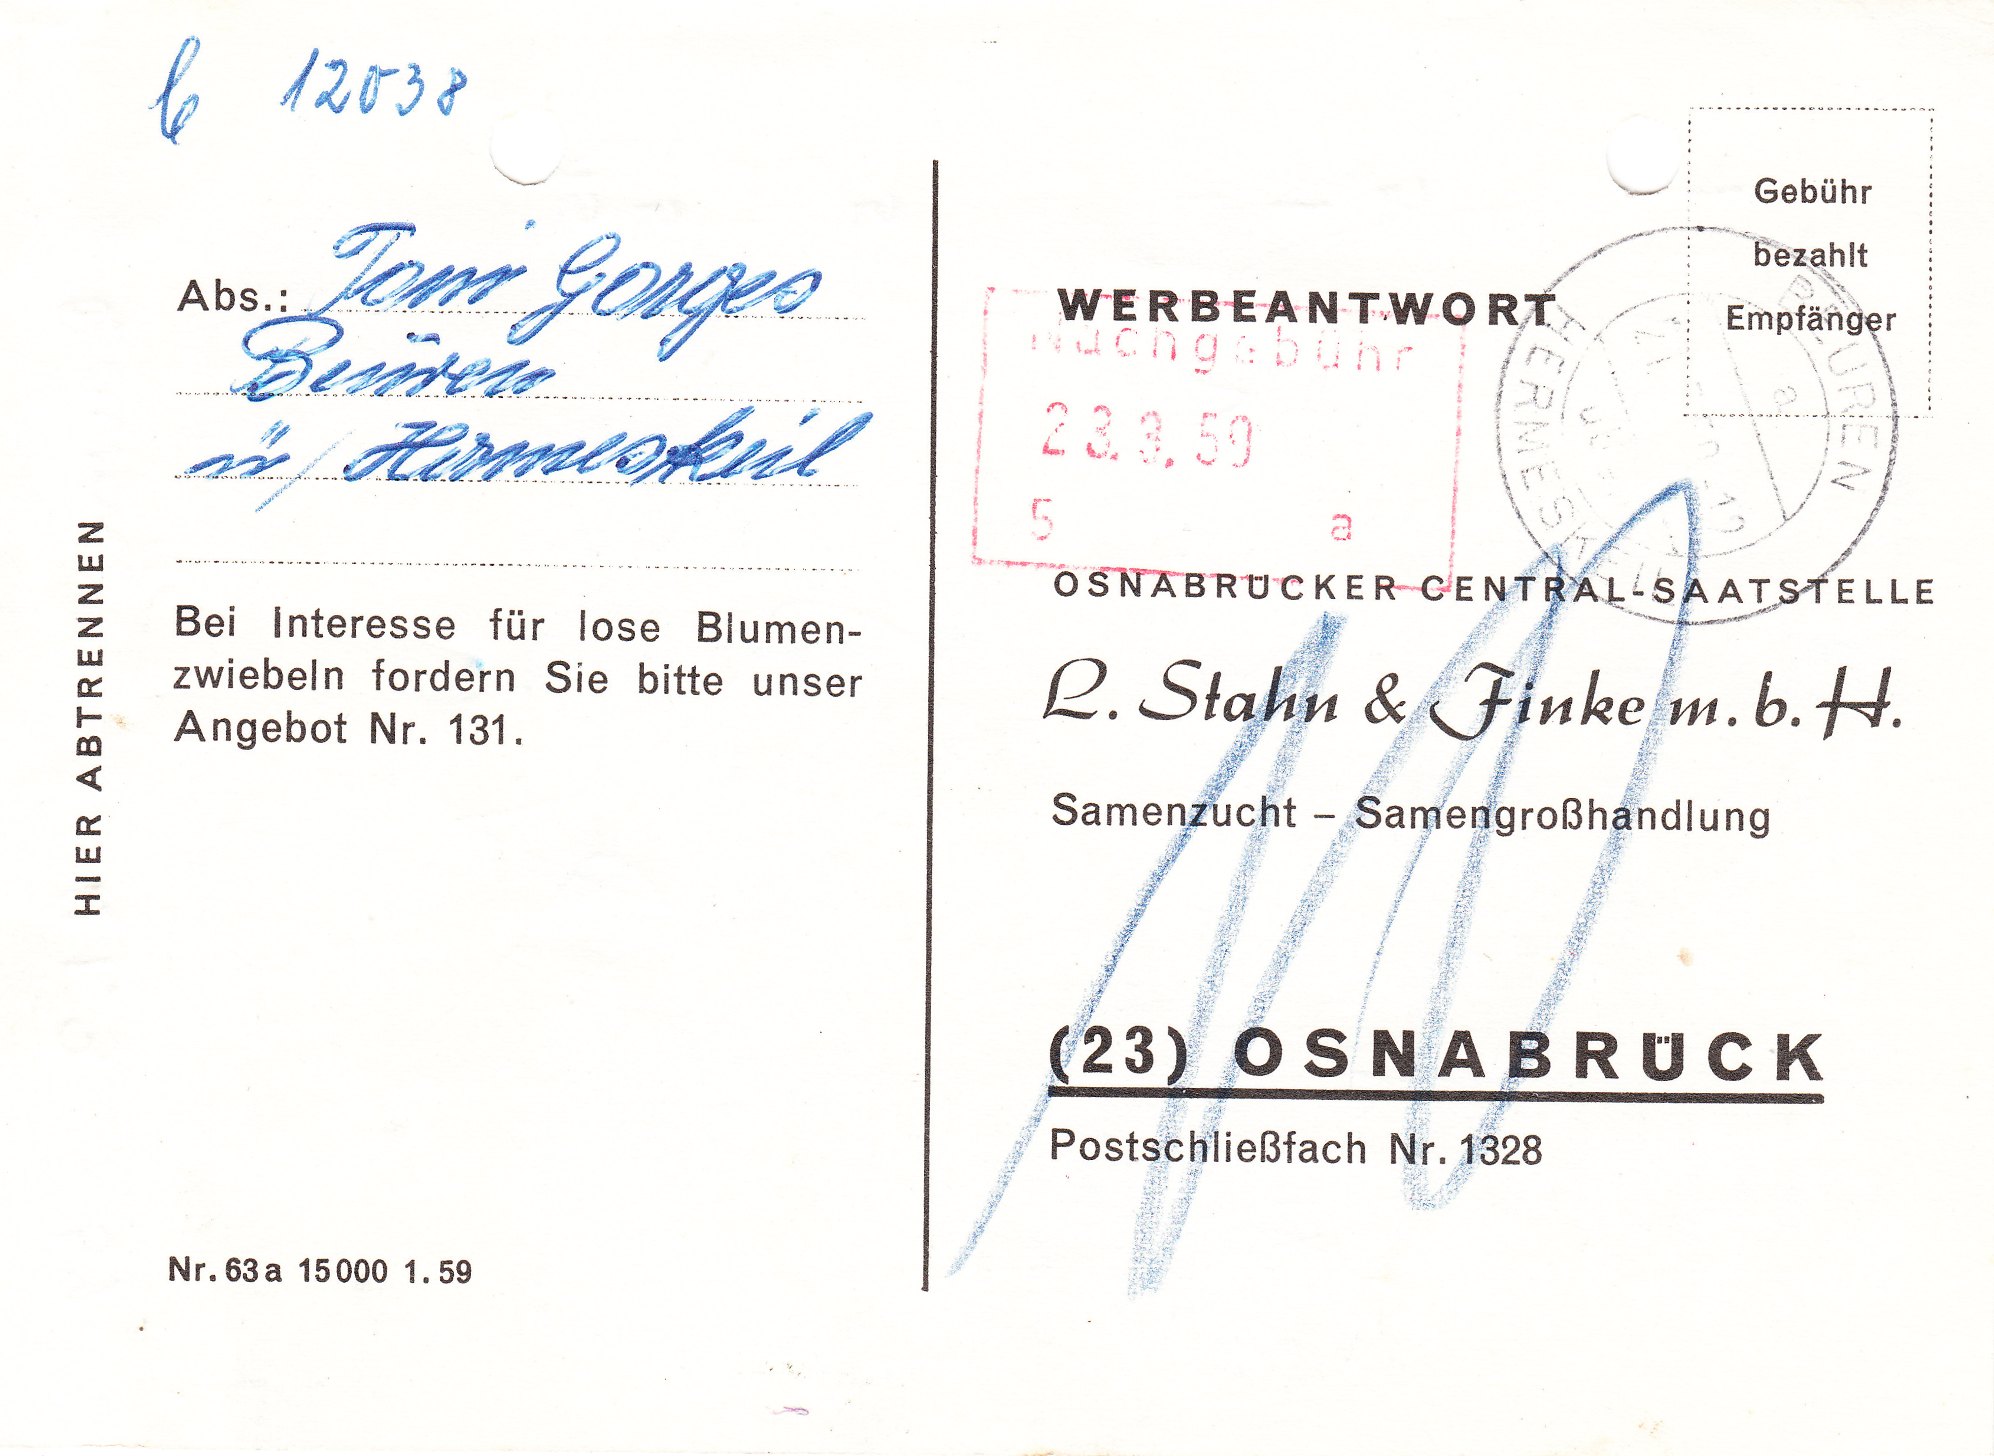 12038
Abs.: Toni Gorges
Beuren
ü/ Hermeskeil
HIER ABTRENNEN
Bei Interesse für lose Blumen-
zwiebeln fordern Sie bitte unser
Angebot Nr. 131.
Nr. 63a 15000 1.59
Gebühr
bezahlt
Empfänger
WERBEANTWORT
Nachgebühr
23.9.59
5 a
BEUREN
HERMESKEIL
a
OSNABRÜCKER CENTRAL-SAATSTELLE
L. Stahn & Finke m. b. H.
Samenzucht – Samengroßhandlung
(23) OSNABRÜCK
Postschließfach Nr. 1328